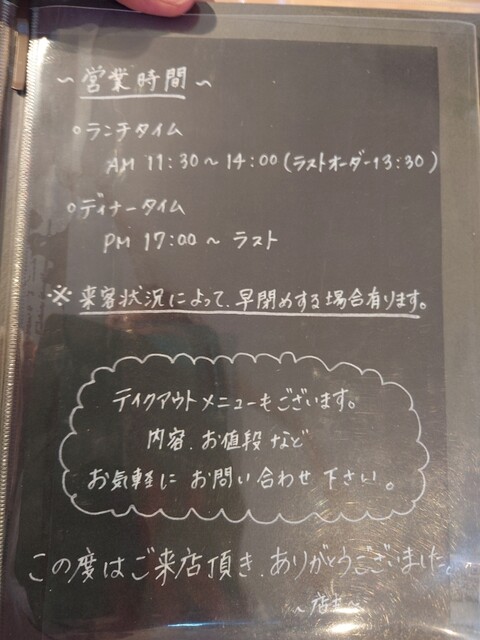 ～営業時間～
○ランチタイム
AM 11:30～14:00(ラストオーダー13:30)
○ディナータイム
PM 17:00～ラスト
※来客状況によって、早閉めする場合有ります。
テイクアウトメニューもございます。
内容、お値段など
お気軽にお問い合わせ下さい。
この度はご来店頂き、ありがとうございました。
～店主～